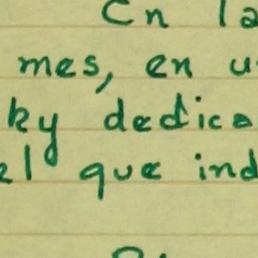 En la
mes, en u
ky dedica
el que ind